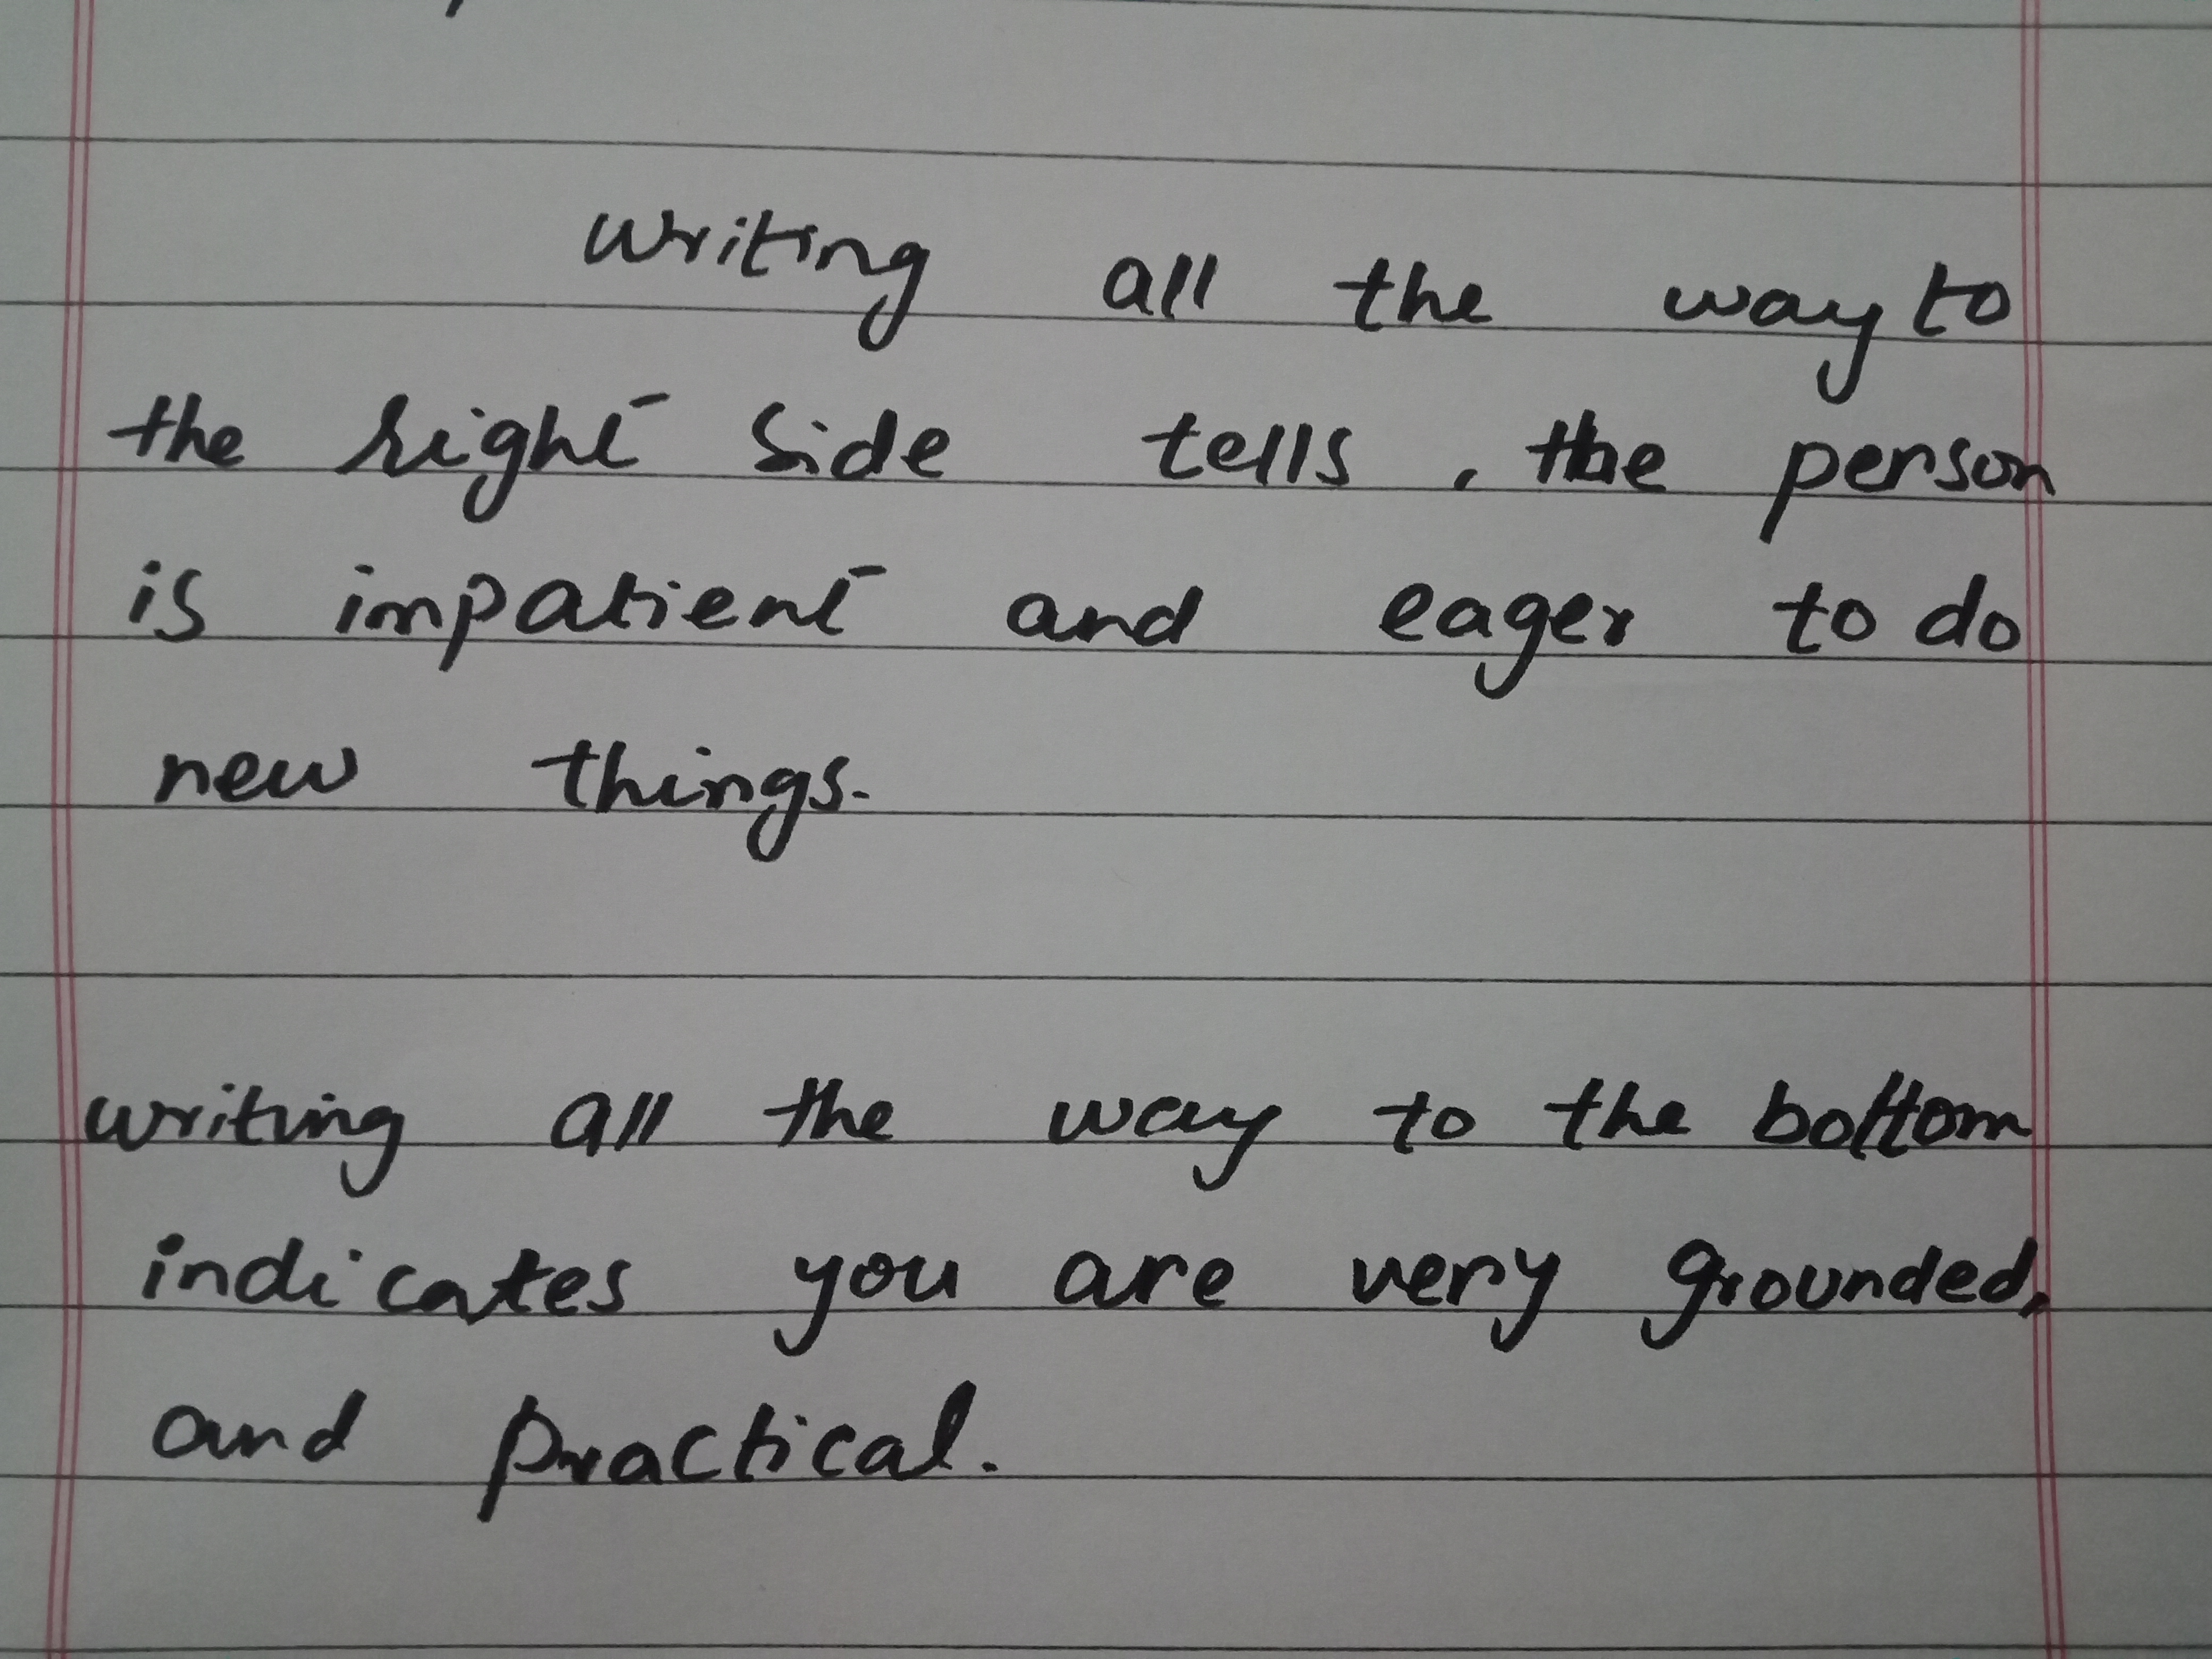 writing all the way to
the right side tells, the person
is impatient and eager to do
new things.
writing all the way to the bottom
indicates you are very grounded,
and practical.